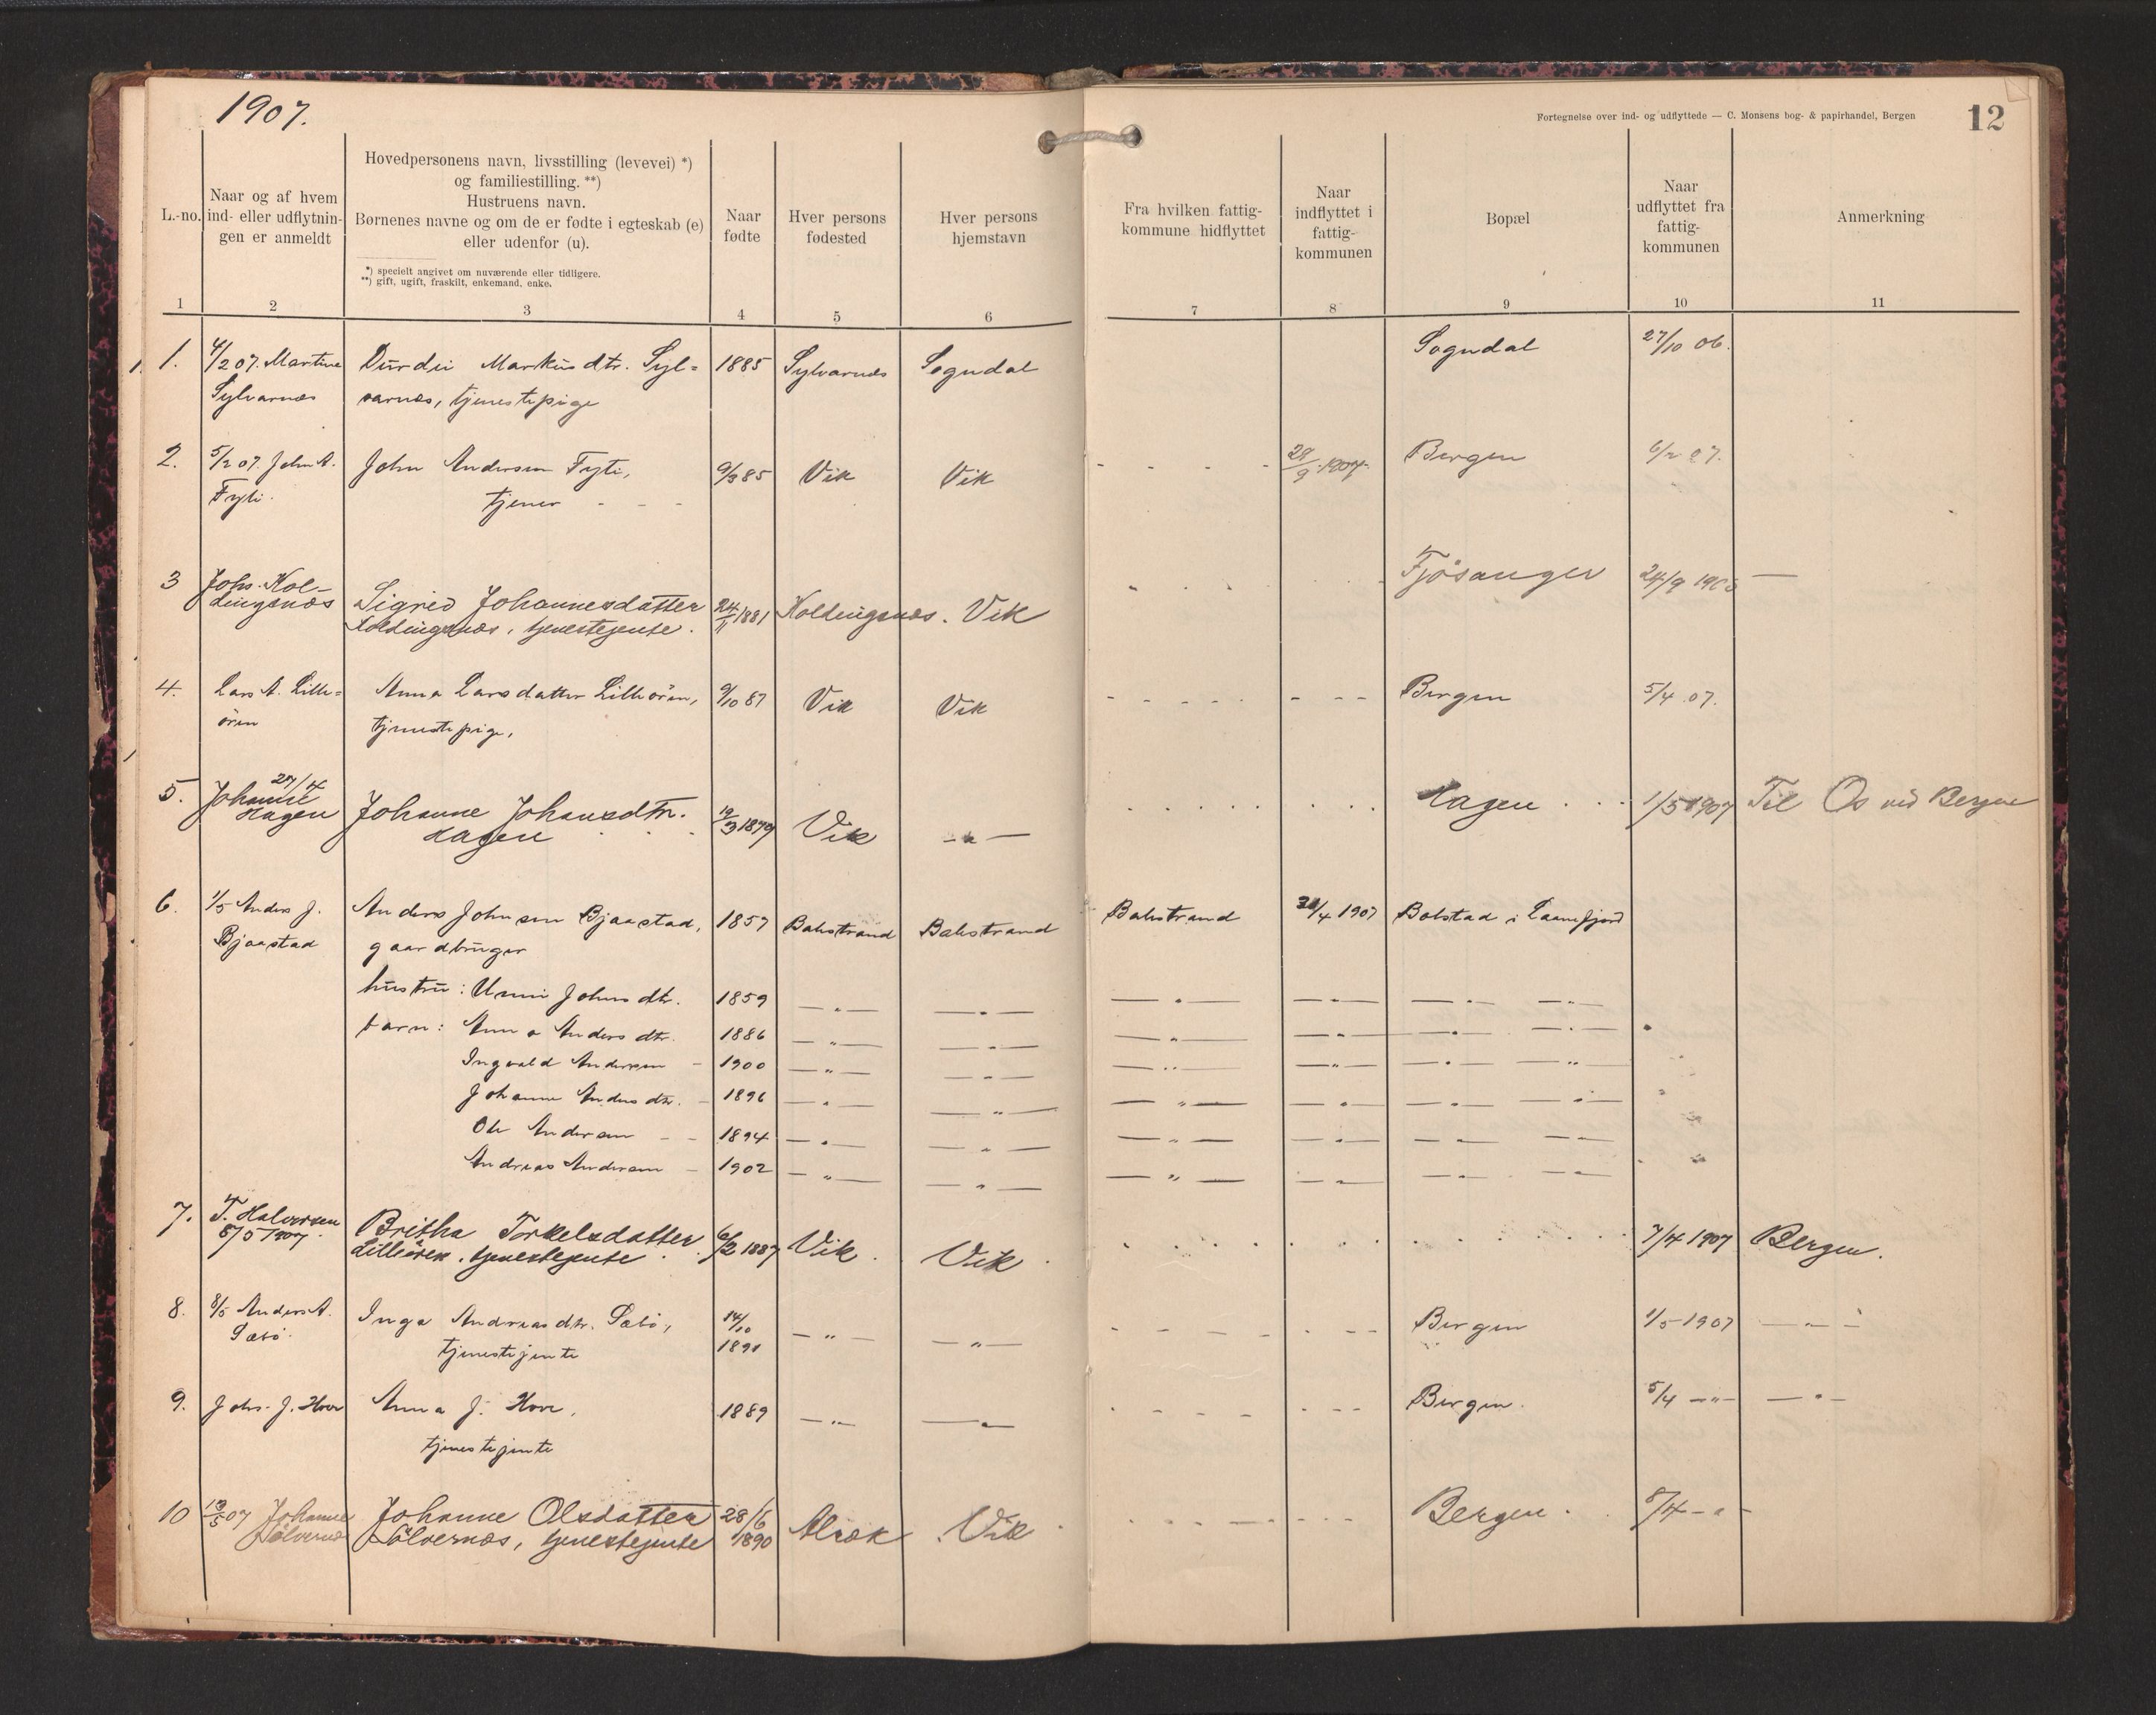 1907.
Fortegnelse over ind- og udflyttede — C. Monsens bog- & papirhandel, Bergen
12
L.-no.
Naar og af hvem
ind- eller udflytnin-
gen er anmeldt
Hovedpersonens navn, livsstilling (levevei) *)
og familiestilling. **)
Hustruens navn.
Børnenes navne og om de er fødte i egteskab (e)
eller udenfor (u).
*) specielt angivet om nuværende eller tidligere.
**) gift, ugift, fraskilt, enkemand, enke.
Naar
fødte
Hver persons
fødested
Hver persons
hjemstavn
Fra hvilken fattig-
kommune hidflyttet
Naar
indflyttet i
fattig-
kommunen
Bopæl
Naar
udflyttet fra
fattig-
kommunen
Anmerkning
1 2 3 4 5 6 7 8 9 10 11
1. 4/2 07. Martine Durdei Markusdtr. Syl= 1885 Sylvarnæs Sogndal Sogndal 27/10 06.
Sylvarnæs varnæs, tjenestepige
2. 5/2 07. John A. John Andersen Fyti, 9/3 85 Vik Vik 28/9 1904 Bergen 6/2 07.
Fyti. tjener - - -
3 Johs. Hol-
dingsnæs Sigrid Johannesdatter 24/11 1881 Holdingsnæs. Vik Fjøsanger 24/9 —
Holdingsnæs, tjenestejente.
4. Lars A. Lille= Anna Larsdatter Lilleören, 9/10 87 Vik Vik Bergen 5/4 07.
ören tjenestepige,
5. 27/4
Johanne Johanne Johansdtr. 19/3 1879 Vik —"— Hagen 1/5 1907 Til Os ved Bergen
Hagen Hagen
6. 1/5 Anders J. Anders Johnsen Bjaastad, 1857 Balestrand Balestrand Balestrand 30/4 1907 Bolstad i Laanefjord
Bjaastad gaardbruger
hustru: Unni Johnsdtr. 1859 —"— —"— —"— —"— —"— —"—
barn: Anna Andersdtr. 1886 —"— —"— —"— —"— —"— —"—
Ingvald Andersen - 1900 —"— —"— —"— —"— —"— —"—
Johanne Andersdtr. - 1896 —"— —"— —"— —"— —"— —"—
Ole Andersen - - 1894 —"— —"— —"— —"— —"— —"—
Andreas Andersen - 1902 —"— —"— —"— —"— —"— —"—
7. T. Halvorsen Britha Torkelsdatter 6/2 1887 Vik. Vik 7/4 1907 Bergen.
8/5 1907. Lilleören, tjenestejente
8. 8/5 Anders A. Inga Andreasdtr. Sæbö, 14/10 —"— —"— Bergen 1/5 1907 —"—
Sæbö. tjenestejente 1891
9. Johs. J. Hove Anna J. Hove, 1889 —"— —"— Bergen. 5/4 —"— —"—
tjenestejente
10 13/5 07 Johanne Johanne Olsdatter 28/6 Alræk Vik Bergen. 8/4 —"—
Sölvernæs Sölvernæs, tjenestejente 1890